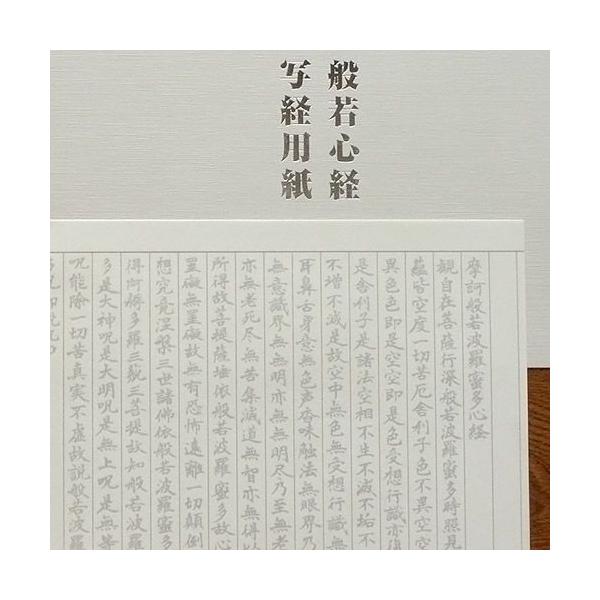 般若心経
写経用紙
摩訶般若波羅蜜多心経
観自在菩薩行深般若波羅蜜多時照見
蘊皆空度一切苦厄舎利子色不異空空
異色色即是空空即是色受想行識亦復
是舎利子是諸法空相不生不滅不垢不
不増不減是故空中無色無受想行識無
耳鼻舌身意無色声香味触法無眼界乃
無意識界無無明亦無無明尽乃至無老
亦無老死尽無苦集滅道無智亦無得以
所得故菩提薩埵依般若波羅蜜多故心
罣礙無罣礙故無有恐怖遠離一切顛倒
想究竟涅槃三世諸佛依般若波羅蜜多
得阿耨多羅三藐三菩提故知般若波羅
多是大神呪是大明呪是無上呪是無等
呪能除一切苦真実不虚故説般若波羅